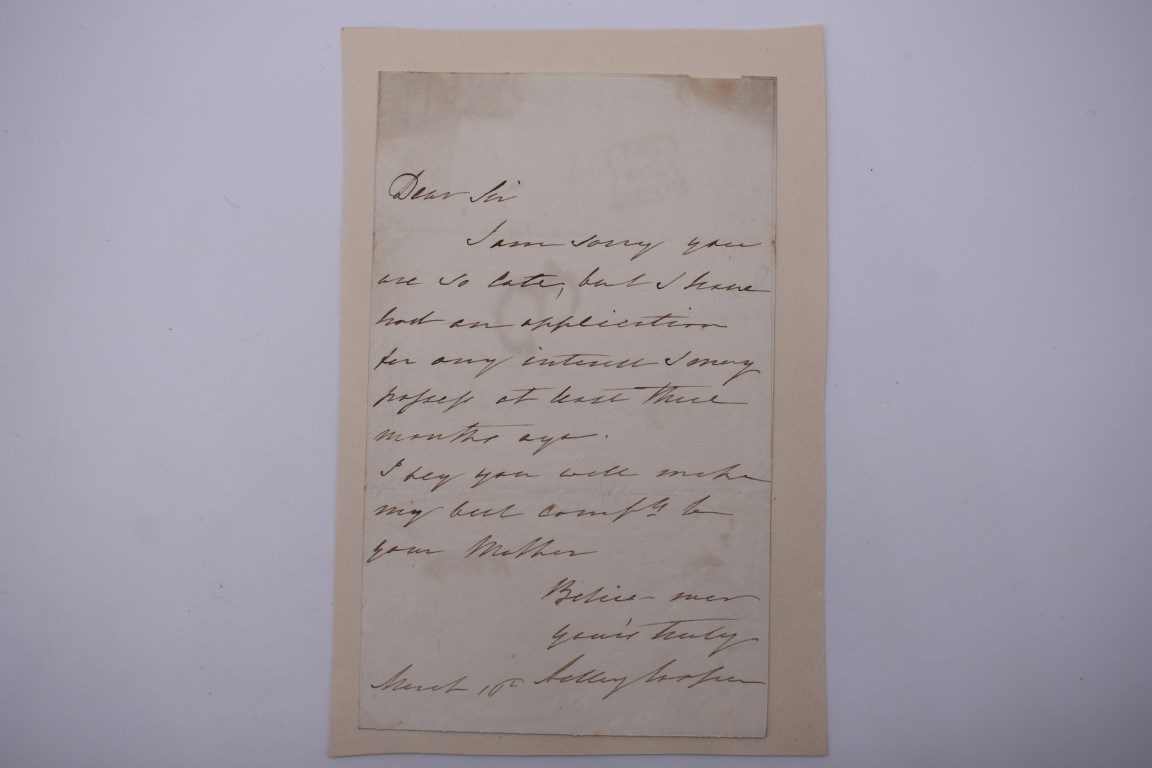 Dear Sir
I am sorry you
are so late, but I have
had an application
for any interest I may
possess at least three
months ago.
I beg you will make
my best compts to
your Mother
Believe me
your's truly
March Astley Cooper